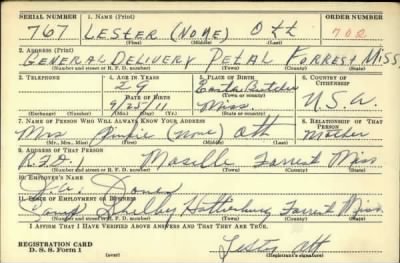 SERIAL NUMBER 1. NAME (Print) ORDER NUMBER
767 LESTER (NONE) Ott 702
(First) (Middle) (Last)
2. ADDRESS (Print)
GENERAL DELIVERY PETAL FORREST MISS
(Number and street or R. F. D. number) (Town) (County) (State)
3. TELEPHONE 4. AGE IN YEARS 5. PLACE OF BIRTH 6. COUNTRY OF CITIZENSHIP
29
DATE OF BIRTH (Town or county)
9/25/11 Miss. U.S.A.
(Exchange) (Number) (Mo.) (Day) (Yr.) (State or country)
7. NAME OF PERSON WHO WILL ALWAYS KNOW YOUR ADDRESS 8. RELATIONSHIP OF THAT PERSON
Mrs (None) Ott Mother
(Mr., Mrs., Miss) (First) (Middle) (Last)
9. ADDRESS OF THAT PERSON
R.F.D. 1 Moselle Forrest Miss
(Number and street or R. F. D. number) (Town) (County) (State)
10. EMPLOYER'S NAME
Jones
11. PLACE OF EMPLOYMENT OR BUSINESS
Camp Shelby Hattiesburg Forrest Miss
(Number and street or R. F. D. number) (Town) (County) (State)
I AFFIRM THAT I HAVE VERIFIED ABOVE ANSWERS AND THAT THEY ARE TRUE.
REGISTRATION CARD
D. S. S. Form 1
Lester Ott
(Registrant's signature)